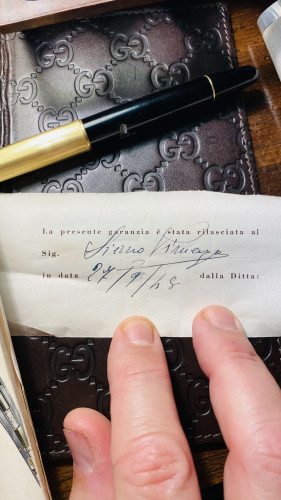 La presente garanzia è stata rilasciata al
Sig.
in data 27/9/48 dalla Ditta: